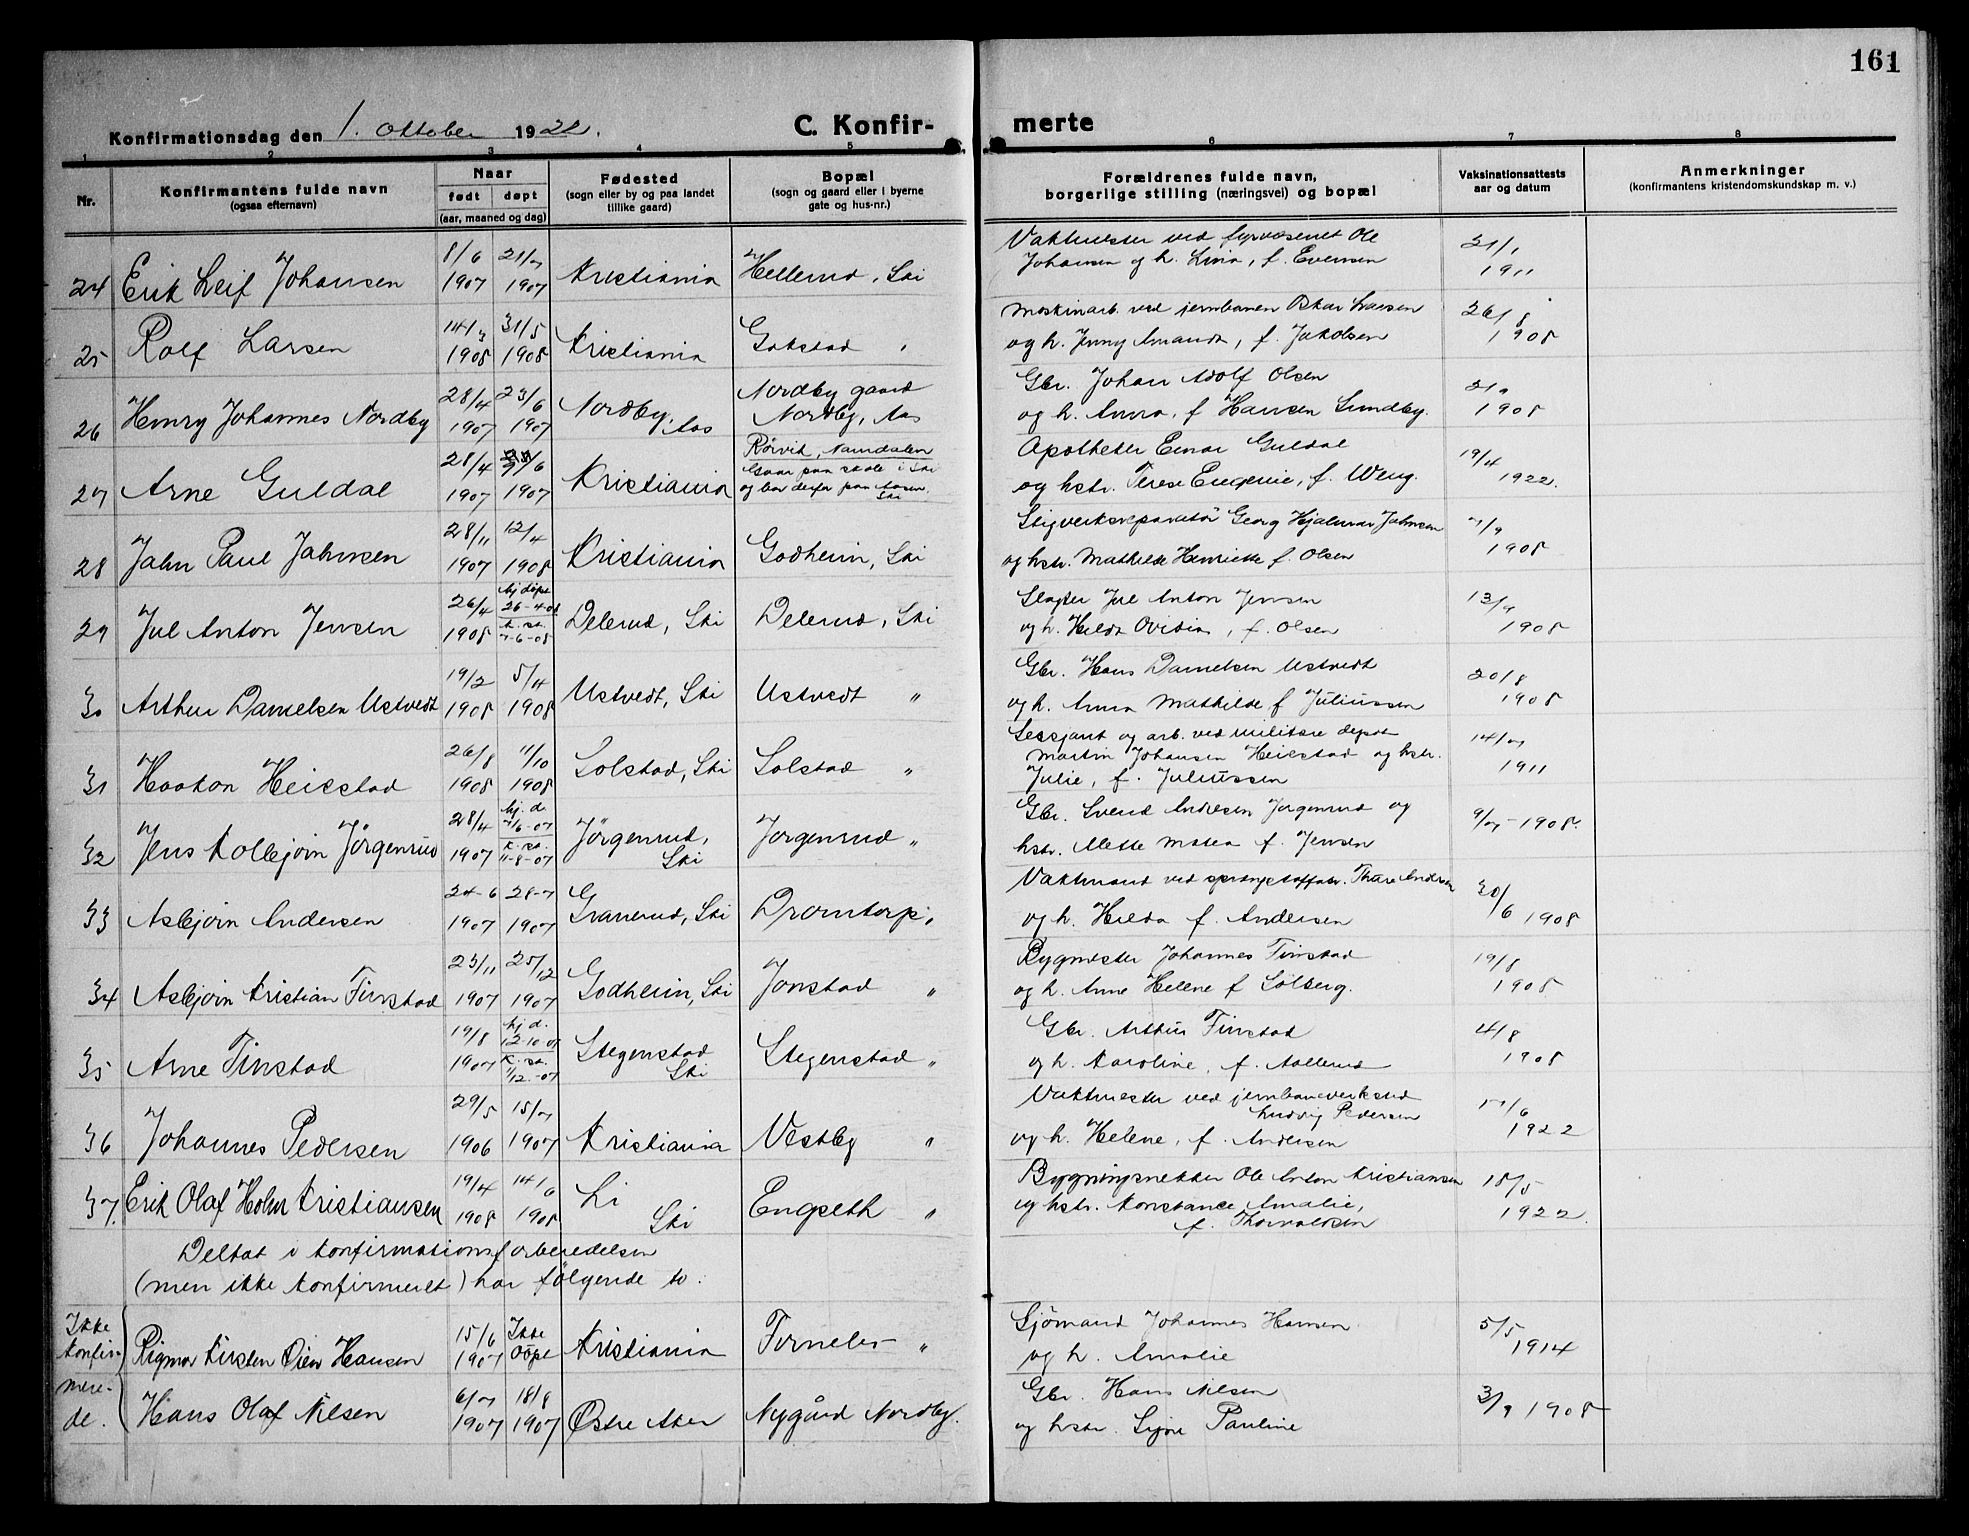 161
Konfirmationsdag den 1. Oktober 1922.
C. Konfir- merte
1 2 3 4 5 6 7 8
Nr.
Konfirmantens fulde navn
(ogsaa efternavn)
Naar
født døpt
(aar, maaned og dag)
Fødested
(sogn eller by og paa landet
tillike gaard)
Bopæl
(sogn og gaard eller i byerne
gate og hus-nr.)
Forældrenes fulde navn,
borgerlige stilling (næringsvei) og bopæl
Vaksinationsattests
aar og datum
Anmerkninger
(konfirmantens kristendomskundskap m. v.)
24 Erik Leif Johansen 8/6 1907 21/7 1907 Kristiania Hellerud, Ski
Vaktmester ved fyrvæsenet Ole
Johansen og h. Lina, f. Evensen
21/1 1911
25 Rolf Larsen 14/3 1908 31/5 1908 Kristiania Gakstad "
Maskinarb. ved jernbanen Oskar Larsen
og h. Jenny Amanda, f. Jakobsen
26/8 1908
26 Henry Johannes Nordby 28/4 1907 23/6 1907 Nordby, Aas Nordby gaard
Nordby, Aas
Gbr. Johan Adolf Olsen
og h. Anna, f Hansen Sundby.
1908
27 Arne Guldal 28/4 1907 /6 1907 Kristiania Rørvik, Namdalen
Gaar paa skole i Ski
og bor derfor paa Aasen, Ski
Apotheker Einar Guldal
og hstr. Terese Eugenie, f. Weng.
19/4 1922.
28 Jahn Paul Jahnsen 28/11 1907 12/4 1908 Kristiania Godheim, Ski
Stigverksreparatør Georg Hjalmar Jahnsen
og hstr. Mathilde Henriette f. Olsen
7/9 1908
29 Jul Anton Jensen 26/4 1908 hj døpt 26-4-08 k. st. 7-6-08 Delerud, Ski Delerud, Ski
Slagter Jul Anton Jensen
og h. Hilda Ovidia, f. Olsen
13/9 1908
30 Arthur Danielsen Ustvedt 19/2 1908 5/4 1908 Ustvedt, Ski Ustvedt "
Gbr. Hans Danielsen Ustvedt
og h. Anna Mathilde f Juliussen
20/8 1908
31 Haakon Heiestad 26/8 1908 11/10 1908 Solstad, Ski Solstad "
Sersjant og arb. ved militære depot
Martin Johansen Heiestad og hstr.
Julie, f. Juliussen
14/7 1911
32 Jens Kolbjørn Jørgenrud 28/4 1907 hj. d. 7/6-07 k. st. 11-8-07 Jørgenrud, Ski Jørgenrud "
Gbr. Svend Andersen Jørgenrud og
hstr. Mette Matea f. Jensen
9/7-1908.
33 Asbjørn Andersen 24-6 1907 28-7 1907 Granerud, Ski Dromtorp "
Vaktmand ved sprængstoffabr. Thare Andersen
og h. Hilda f. Andersen
30/6 1908
34 Asbjørn Kristian Finstad 23/11 1907 25/12 1907 Godheim, Ski Jonstad "
Bygmester Johannes Finstad
og h. Anne Helene f Solberg.
19/8 1908
35 Arne Finstad 19/8 1907 hj d. 12-10-07 k. st. 1/12.-07 Stegenstad Ski Stegenstad "
Gbr. Arthur Finstad
og h. Karoline, f. Aallerud
4/8 1908
36 Johannes Pedersen 29/5 1906 15/7 1907 Kristiania Vestby "
Vaktmester ved jernbaneverksted
Ludvig Pedersen
og h. Helene, f. Andersen
17/6 1922
37. Erik Olaf Holm Kristiansen 19/4 1908 14/6 1908 Li Ski Engseth "
Bygningsnekker Ole Anton Kristiansen
og hstr. Konstance Amalie,
f. Thorvaldsen
18/5 1922.
Deltat i konfirmationsforberedelsen
(men ikke konfirmert) har følgende to:
Ikke konfir- mere- de.
Rigmor Kirsten Oien Hansen 15/6 1907 Ikke døpt Kristiania Tirneler "
Sjømand Johannes Hansen
og h. Amalie
5/5 1914
Hans Olaf Nilsen 6/7 1907 18/8 1907 Østre Aker Nygård Nordby.
Gbr. Hans Nilsen
og hstr. Signe Pauline
3/9 1908